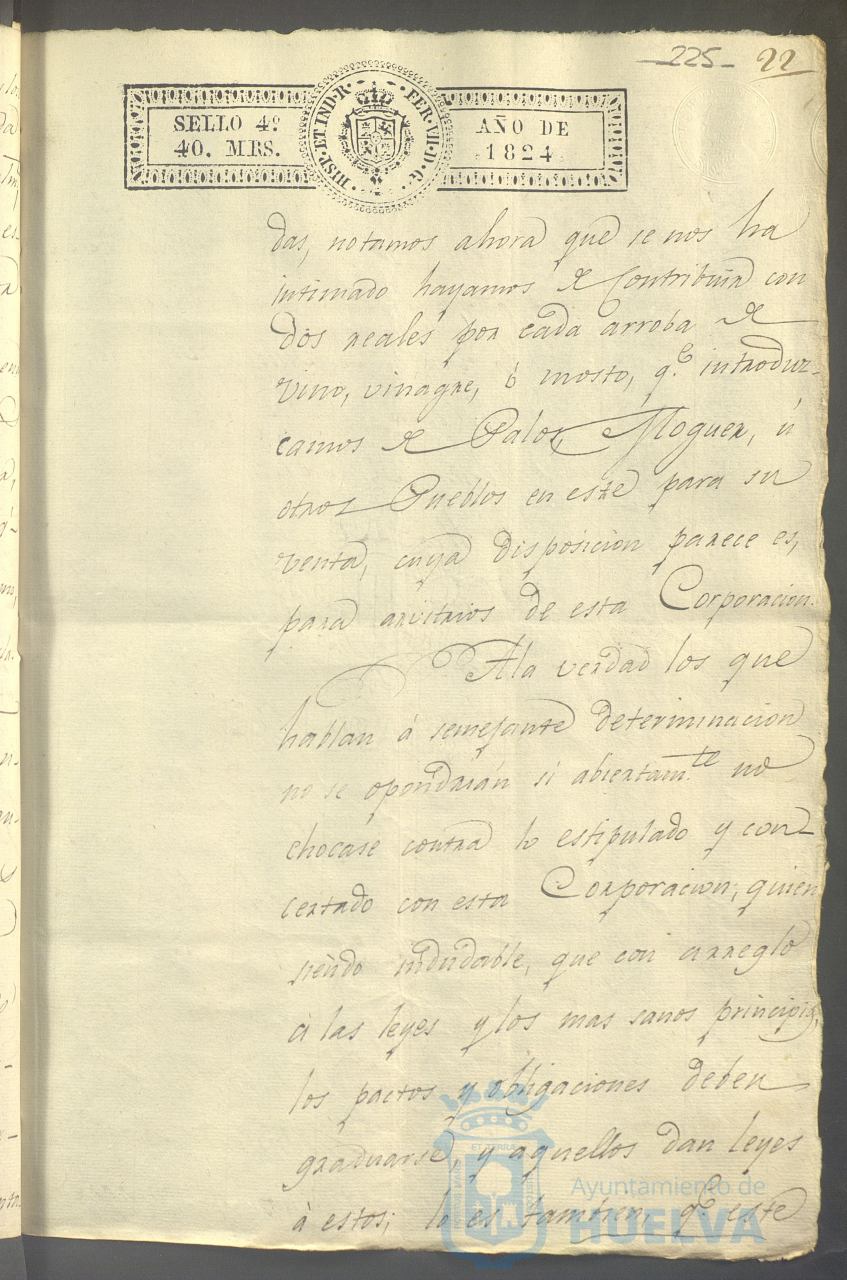 225 22
SELLO 4º
40. MRS.
HISP. ET IND. R. FER. VII. D. G.
AÑO DE
1824
das, notamos ahora que se nos ha
intimado hayamos de Contribuir con
dos reales por cada arroba de
vino, vinagre, ò mosto, q.e introduz-
camos de Palos, Moguer, ù
otros Pueblos en este para su
venta, cuya disposicion parece es,
para arvitrios de esta Corporacion.
Ala verdad los que
hablan á semejante determinacion
no se opondrián si abiertam.te no
chocase contra lo estipulado y con
certado con esta Corporacion, quien
siendo indudable, que con arreglo
á las leyes y los mas sanos principios,
los pactos y obligaciones deben
graduarse, y aquellos dan leyes
à estos; lo es tambien q.e este
Ayuntamiento de
HUELVA